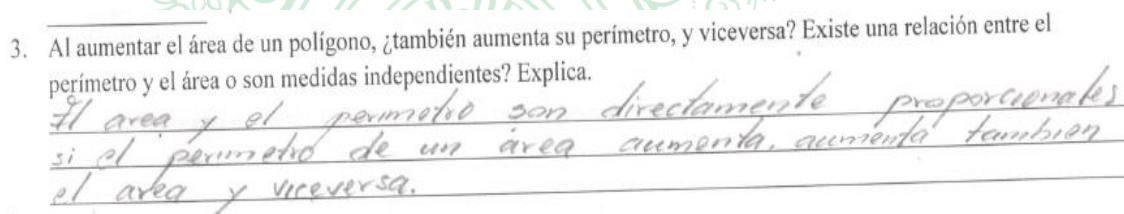 3. Al aumentar el área de un polígono, ¿también aumenta su perímetro, y viceversa? Existe una relación entre el
perímetro y el área o son medidas independientes? Explica.
El area y el perimetro son directamente proporcionales
si el perimetro de un área aumenta, aumenta tambien
el area y viceversa.